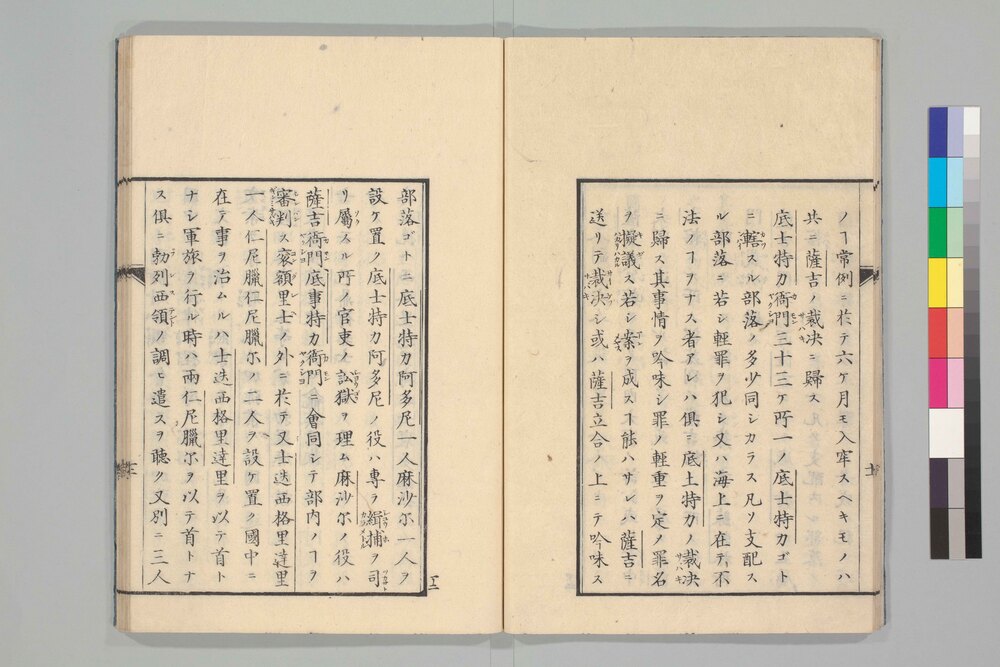 ノヿ常例ニ於テ六ケ月モ入牢スヘキモノハ
共ニ薩吉ノ裁决ニ歸ス
底士特カ衙門三十三ケ所一ノ底士特カゴト
ニ轄スル部落ノ多少同シカラス凡ソ支配ス
ル部落ニ若シ輕罪ヲ犯シ又ハ海上ニ在テ不
法ノヿヲナス者アレハ俱ニ底士特カノ裁决
ニ歸ス其事情ヲ吟味シ罪ノ輕重ヲ定メ罪名
ヲ擬議ス若シ案ヲ成スヿ能ハサレハ薩吉ニ
送リテ裁决シ或ハ薩吉立合ノ上ニテ吟味ス
部落ゴトニ底士特カ阿多尼一人麻沙尓一人ヲ
設ケ置ク底士特カ阿多尼ノ役ハ専ラ緝捕ヲ司
リ屬スル所ノ官吏ノ訟獄ヲ理ム麻沙尓ノ役ハ
薩吉衙門底事特カ衙門ニ會同シテ部内ノヿヲ
審判ス衮額里士ノ外ニ於テ又士迭西格里達里
一人仁尼臘仁尼臘尓ノ二人ヲ設ケ置ク國中ニ
在テ事ヲ治ムルハ士迭西格里達里ヲ以テ首ト
ナシ軍旅ヲ行ル時ハ兩仁尼臘尓ヲ以テ首トナ
ス俱ニ勃列西領ノ調ヒ遣スヲ聴ク又別ニ三人